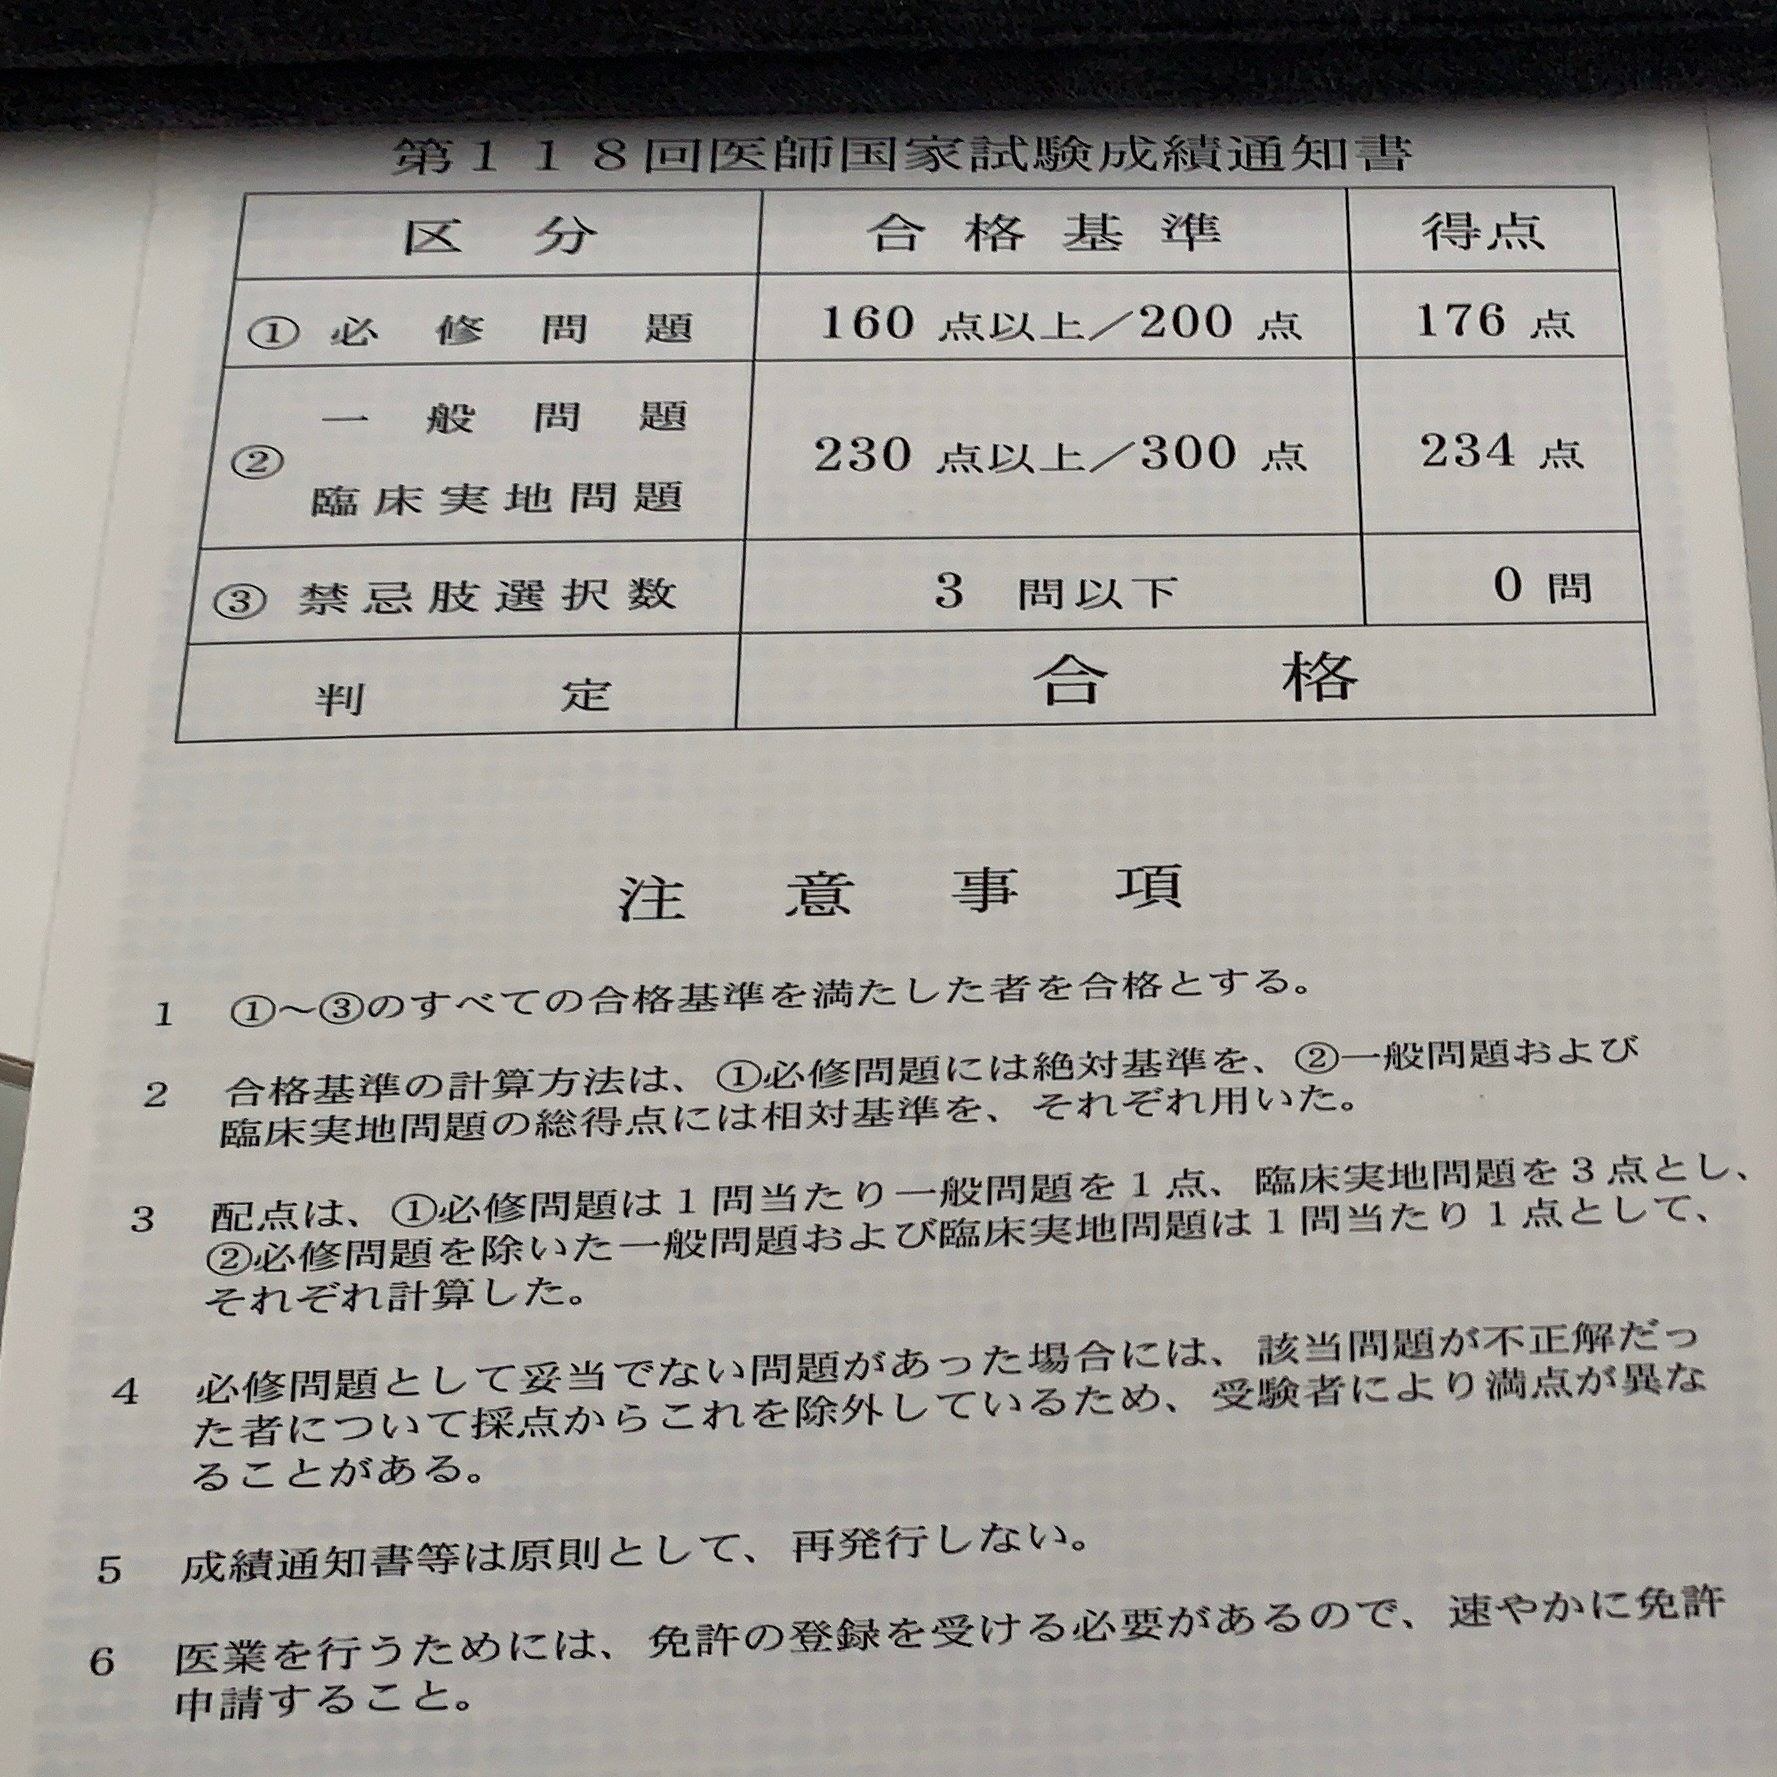 第118回医師国家試験成績通知書
区分 合格基準 得点
①必修問題 160点以上／200点 176点
一般問題
② 230点以上／300点 234点
臨床実地問題
③禁忌肢選択数 3問以下 0問
判定 合格
注意事項
1 ①～③のすべての合格基準を満たした者を合格とする。
2 合格基準の計算方法は、①必修問題には絶対基準を、②一般問題および
臨床実地問題の総得点には相対基準を、それぞれ用いた。
3 配点は、①必修問題は1問当たり一般問題を1点、臨床実地問題を3点とし、
②必修問題を除いた一般問題および臨床実地問題は1問当たり1点として、
それぞれ計算した。
4 必修問題として妥当でない問題があった場合には、該当問題が不正解だっ
た者について採点からこれを除外しているため、受験者により満点が異な
ることがある。
5 成績通知書等は原則として、再発行しない。
6 医業を行うためには、免許の登録を受ける必要があるので、速やかに免許
申請すること。